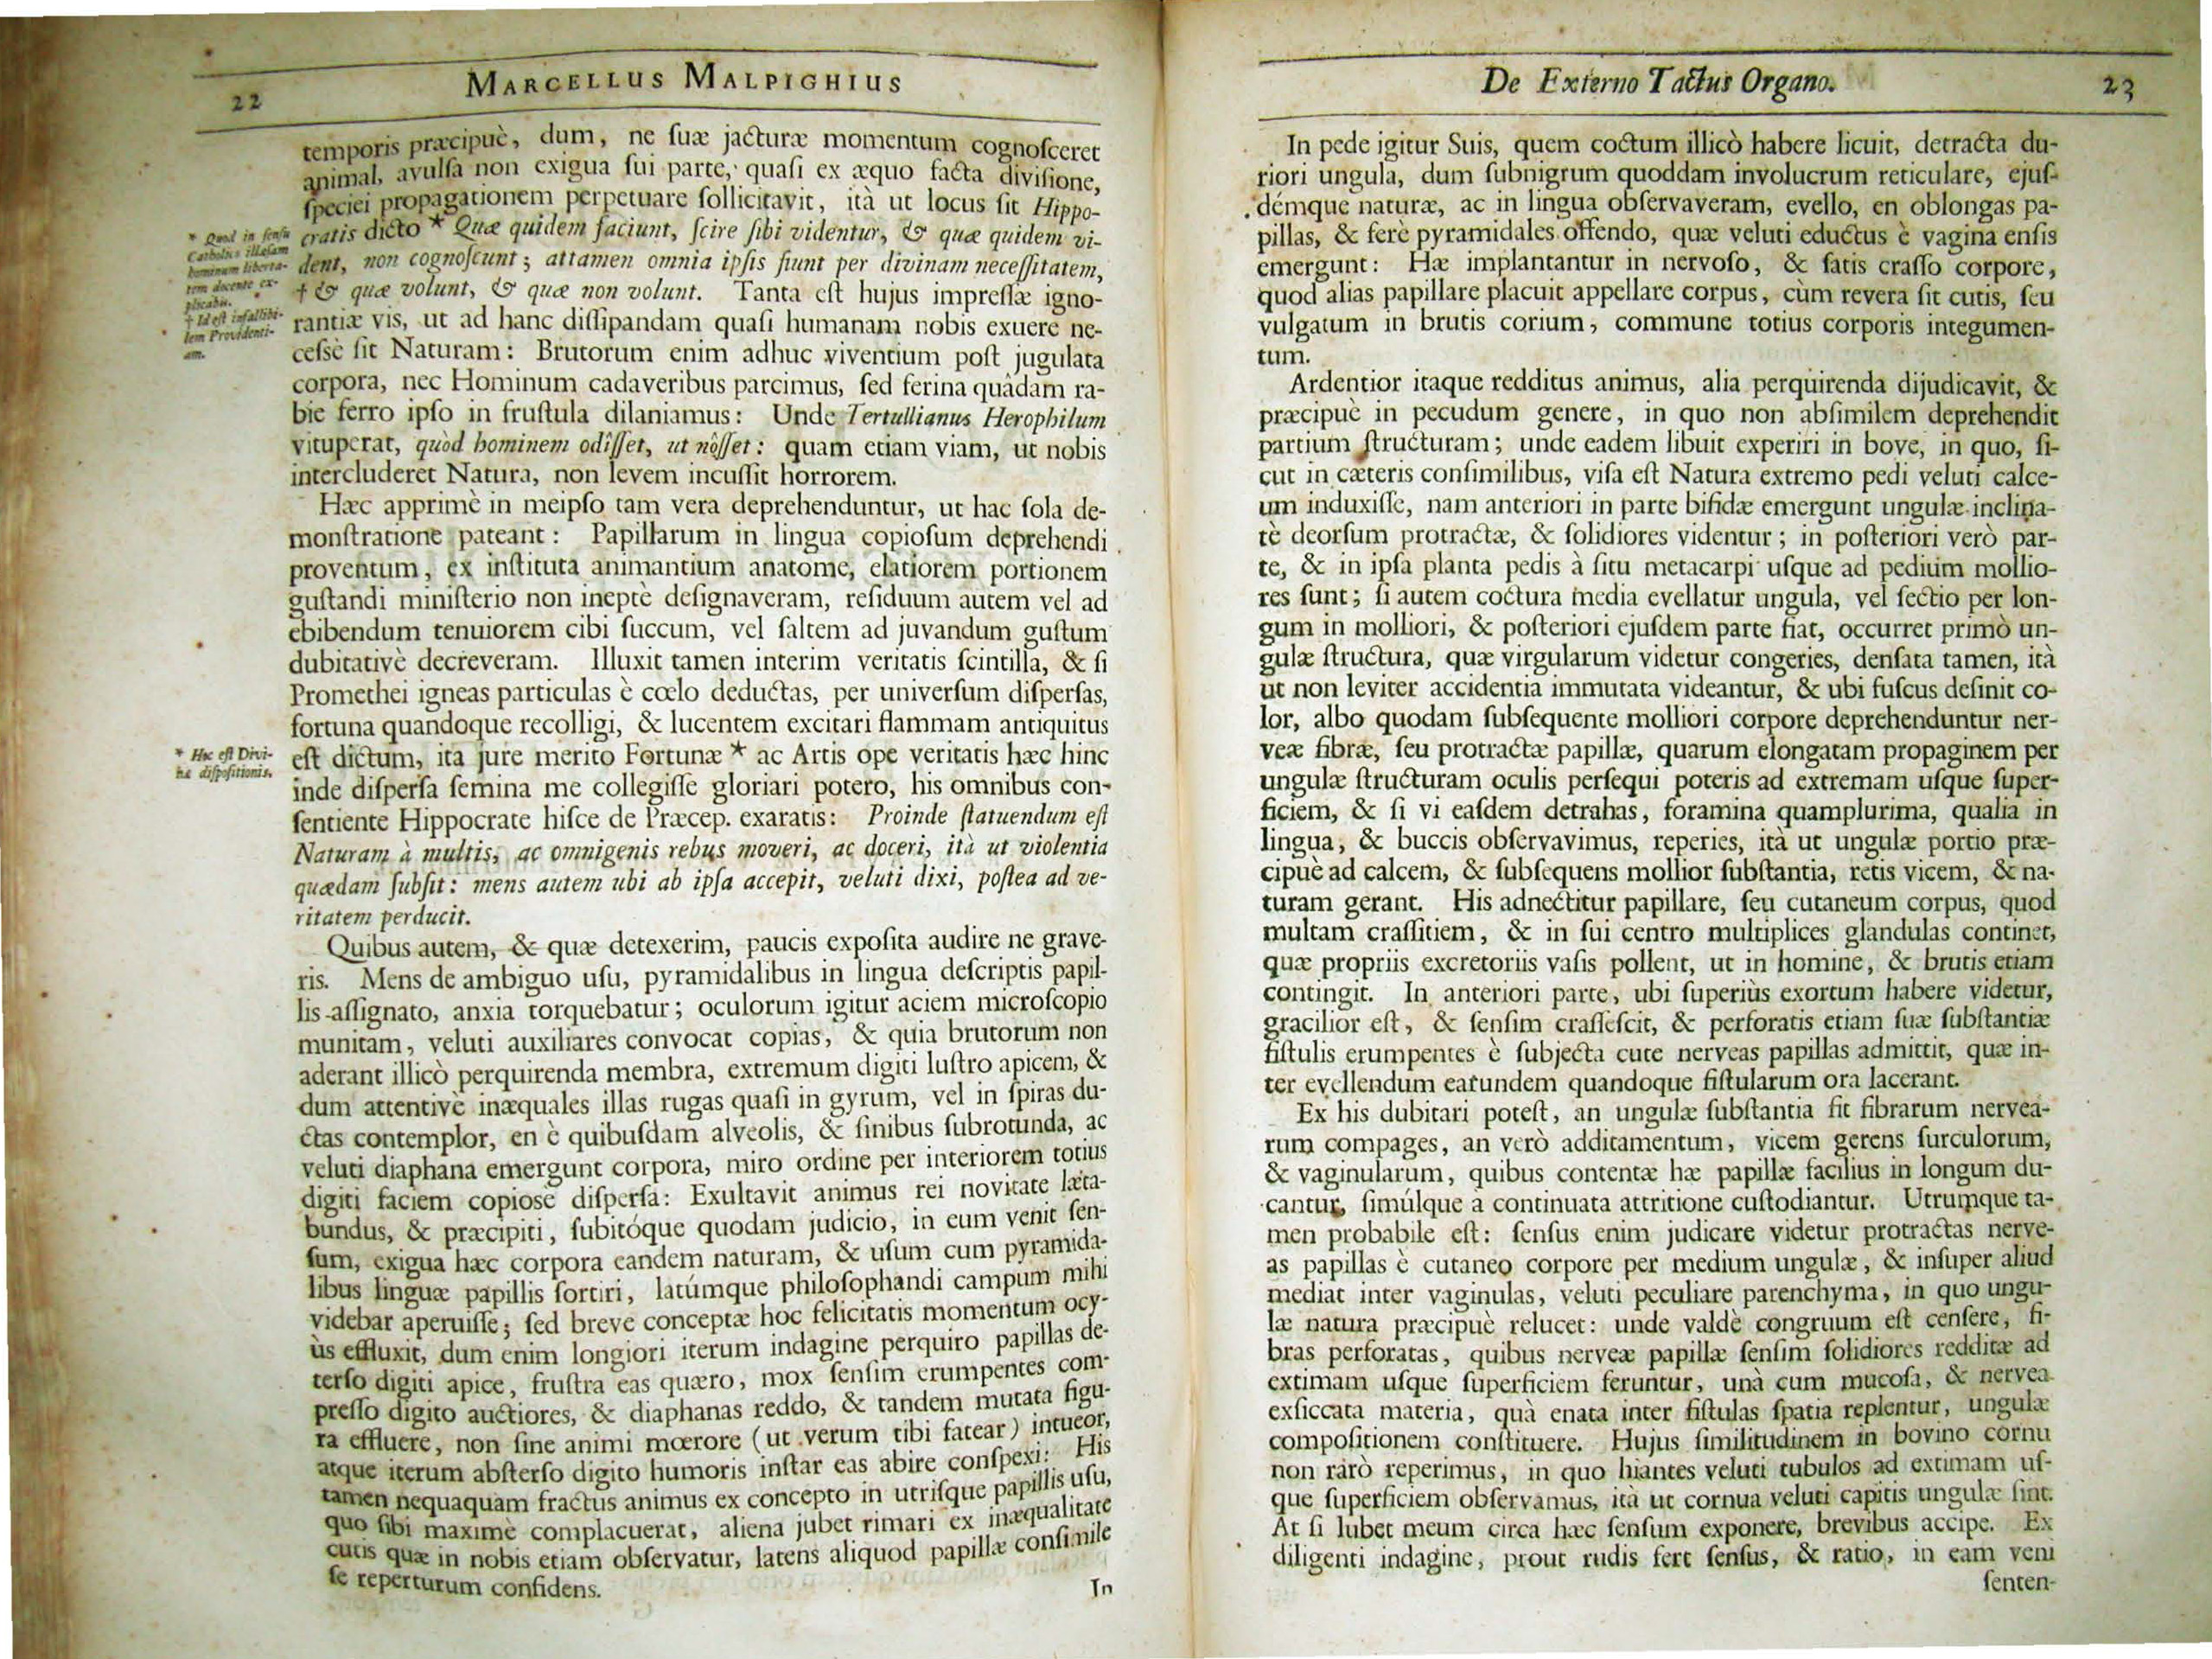 22
MARCELLUS MALPIGHIUS
temporis præcipuè, dum, ne ſuæ jacturæ momentum cognoſceret
animal, avulſa non exigua ſui parte, quaſi ex æquo facta diviſione,
ſpeciei propagationem perpetuare ſollicitavit, ità ut locus ſit Hippo-
cratis dicto * Quæ quidem faciunt, ſcire ſibi videntur, & quæ quidem vi-
dent, non cognoſcunt; attamen omnia ipſis fiunt per divinam neceſſitatem,
† & quæ volunt, & quæ non volunt. Tanta eſt hujus impreſſæ igno-
rantiæ vis, ut ad hanc diſſipandam quaſi humanam nobis exuere ne-
ceſsè ſit Naturam: Brutorum enim adhuc viventium poſt jugulata
corpora, nec Hominum cadaveribus parcimus, ſed ferina quâdam ra-
bie ferro ipſo in fruſtula dilaniamus: Unde Tertullianus Herophilum
vituperat, quòd hominem odiſſet, ut nôſſet: quam etiam viam, ut nobis
intercluderet Natura, non levem incuſſit horrorem.
* Quod in ſenſu
Catholico illæſam
hominum liberta-
tem docente ex-
plicabis.
† Id eſt infallibi-
lem Providenti-
am.
Hæc apprimè in meipſo tam vera deprehenduntur, ut hac ſola de-
monſtratione pateant: Papillarum in lingua copioſum deprehendi
proventum, ex inſtituta animantium anatome, elatiorem portionem
guſtandi miniſterio non ineptè deſignaveram, reſiduum autem vel ad
ebibendum tenuiorem cibi ſuccum, vel ſaltem ad juvandum guſtum
dubitativè decreveram. Illuxit tamen interim veritatis ſcintilla, & ſi
Promethei igneas particulas è cœlo deductas, per univerſum diſperſas,
fortuna quandoque recolligi, & lucentem excitari flammam antiquitus
eſt dictum, ita jure merito Fortunæ * ac Artis ope veritatis hæc hinc
inde diſperſa ſemina me collegiſſe gloriari potero, his omnibus con-
ſentiente Hippocrate hiſce de Præcep. exaratis: Proinde ſtatuendum eſt
Naturam à multis, ac omnigenis rebus moveri, ac doceri, ità ut violentia
quædam ſubſit: mens autem ubi ab ipſa accepit, veluti dixi, poſtea ad ve-
ritatem perducit.
* Hoc eſt Divi-
næ diſpoſitionis.
Quibus autem, & quæ detexerim, paucis expoſita audire ne grave-
ris. Mens de ambiguo uſu, pyramidalibus in lingua deſcriptis papil-
lis aſſignato, anxia torquebatur; oculorum igitur aciem microſcopio
munitam, veluti auxiliares convocat copias, & quia brutorum non
aderant illicò perquirenda membra, extremum digiti luſtro apicem, &
dum attentivè inæquales illas rugas quaſi in gyrum, vel in ſpiras du-
ctas contemplor, en è quibuſdam alveolis, & ſinibus ſubrotunda, ac
veluti diaphana emergunt corpora, miro ordine per interiorem totius
digiti faciem copiosè diſperſa: Exultavit animus rei novitate læta-
bundus, & præcipiti, ſubitóque quodam judicio, in eum venit ſen-
ſum, exigua hæc corpora eandem naturam, & uſum cum pyramida-
libus linguæ papillis ſortiri, latúmque philoſophandi campum mihi
videbar aperuiſſe; ſed breve conceptæ hoc felicitatis momentum ocy-
ùs effluxit, dum enim longiori iterum indagine perquiro papillas de-
terſo digiti apice, fruſtra eas quæro, mox ſenſim erumpentes com-
preſſo digito auctiores, & diaphanas reddo, & tandem mutata figu-
ra effluere, non ſine animi mœrore (ut verum tibi fatear) intueor,
atque iterum abſterſo digito humoris inſtar eas abire conſpexi: His
tamen nequaquam fractus animus ex concepto in utriſque papillis uſu,
quo ſibi maximè complacuerat, aliena jubet rimari ex inæqualitate
cutis quæ in nobis etiam obſervatur, latens aliquod papillæ conſimile
ſe reperturum confidens.
In
De Externo Tactus Organo.
23
In pede igitur Suis, quem coctum illicò habere licuit, detracta du-
riori ungula, dum ſubnigrum quoddam involucrum reticulare, ejuſ-
démque naturæ, ac in lingua obſervaveram, evello, en oblongas pa-
pillas, & ferè pyramidales offendo, quæ veluti eductus è vagina enſis
emergunt: Hæ implantantur in nervoſo, & ſatis craſſo corpore,
quod alias papillare placuit appellare corpus, cùm revera ſit cutis, ſeu
vulgatum in brutis corium, commune totius corporis integumen-
tum.
Ardentior itaque redditus animus, alia perquirenda dijudicavit, &
præcipuè in pecudum genere, in quo non abſimilem deprehendit
partium ſtructuram; unde eadem libuit experiri in bove, in quo, ſi-
cut in cæteris conſimilibus, viſa eſt Natura extremo pedi veluti calce-
um induxiſſe, nam anteriori in parte bifidæ emergunt ungulæ inclina-
tè deorſum protractæ, & ſolidiores videntur; in poſteriori verò par-
te, & in ipſa planta pedis à ſitu metacarpi uſque ad pedium mollio-
res ſunt; ſi autem coctura media evellatur ungula, vel ſectio per lon-
gum in molliori, & poſteriori ejuſdem parte fiat, occurret primò un-
gulæ ſtructura, quæ virgularum videtur congeries, denſata tamen, ità
ut non leviter accidentia immutata videantur, & ubi fuſcus deſinit co-
lor, albo quodam ſubſequente molliori corpore deprehenduntur ner-
veæ fibræ, ſeu protractæ papillæ, quarum elongatam propaginem per
ungulæ ſtructuram oculis perſequi poteris ad extremam uſque ſuper-
ficiem, & ſi vi eaſdem detrahas, foramina quamplurima, qualia in
lingua, & buccis obſervavimus, reperies, ità ut ungulæ portio præ-
cipuè ad calcem, & ſubſequens mollior ſubſtantia, retis vicem, & na-
turam gerant. His adnectitur papillare, ſeu cutaneum corpus, quod
multam craſſitiem, & in ſui centro multiplices glandulas continet,
quæ propriis excretoriis vaſis pollent, ut in homine, & brutis etiam
contingit. In anteriori parte, ubi ſuperiùs exortum habere videtur,
gracilior eſt, & ſenſim craſſeſcit, & perforatis etiam ſuæ ſubſtantiæ
fiſtulis erumpentes è ſubjecta cute nerveas papillas admittit, quæ in-
ter evellendum earundem quandoque fiſtularum ora lacerant.
Ex his dubitari poteſt, an ungulæ ſubſtantia ſit fibrarum nervea-
rum compages, an verò additamentum, vicem gerens ſurculorum,
& vaginularum, quibus contentæ hæ papillæ facilius in longum du-
cantur, ſimúlque à continuata attritione cuſtodiantur. Utrumque ta-
men probabile eſt: ſenſus enim judicare videtur protractas nerve-
as papillas è cutaneo corpore per medium ungulæ, & inſuper aliud
mediat inter vaginulas, veluti peculiare parenchyma, in quo ungu-
læ natura præcipuè relucet: unde valdè congruum eſt cenſere, fi-
bras perforatas, quibus nerveæ papillæ ſenſim ſolidiores redditæ ad
extimam uſque ſuperficiem feruntur, unà cum mucoſa, & nervea
exſiccata materia, quà enata inter fiſtulas ſpatia replentur, ungulæ
compoſitionem conſtituere. Hujus ſimilitudinem in bovino cornu
non rarò reperimus, in quo hiantes veluti tubulos ad extimam uſ-
que ſuperficiem obſervamus, ità ut cornua veluti capitis ungulæ ſint.
At ſi lubet meum circa hæc ſenſum exponere, brevibus accipe. Ex
diligenti indagine, prout rudis fert ſenſus, & ratio, in eam veni
ſenten-